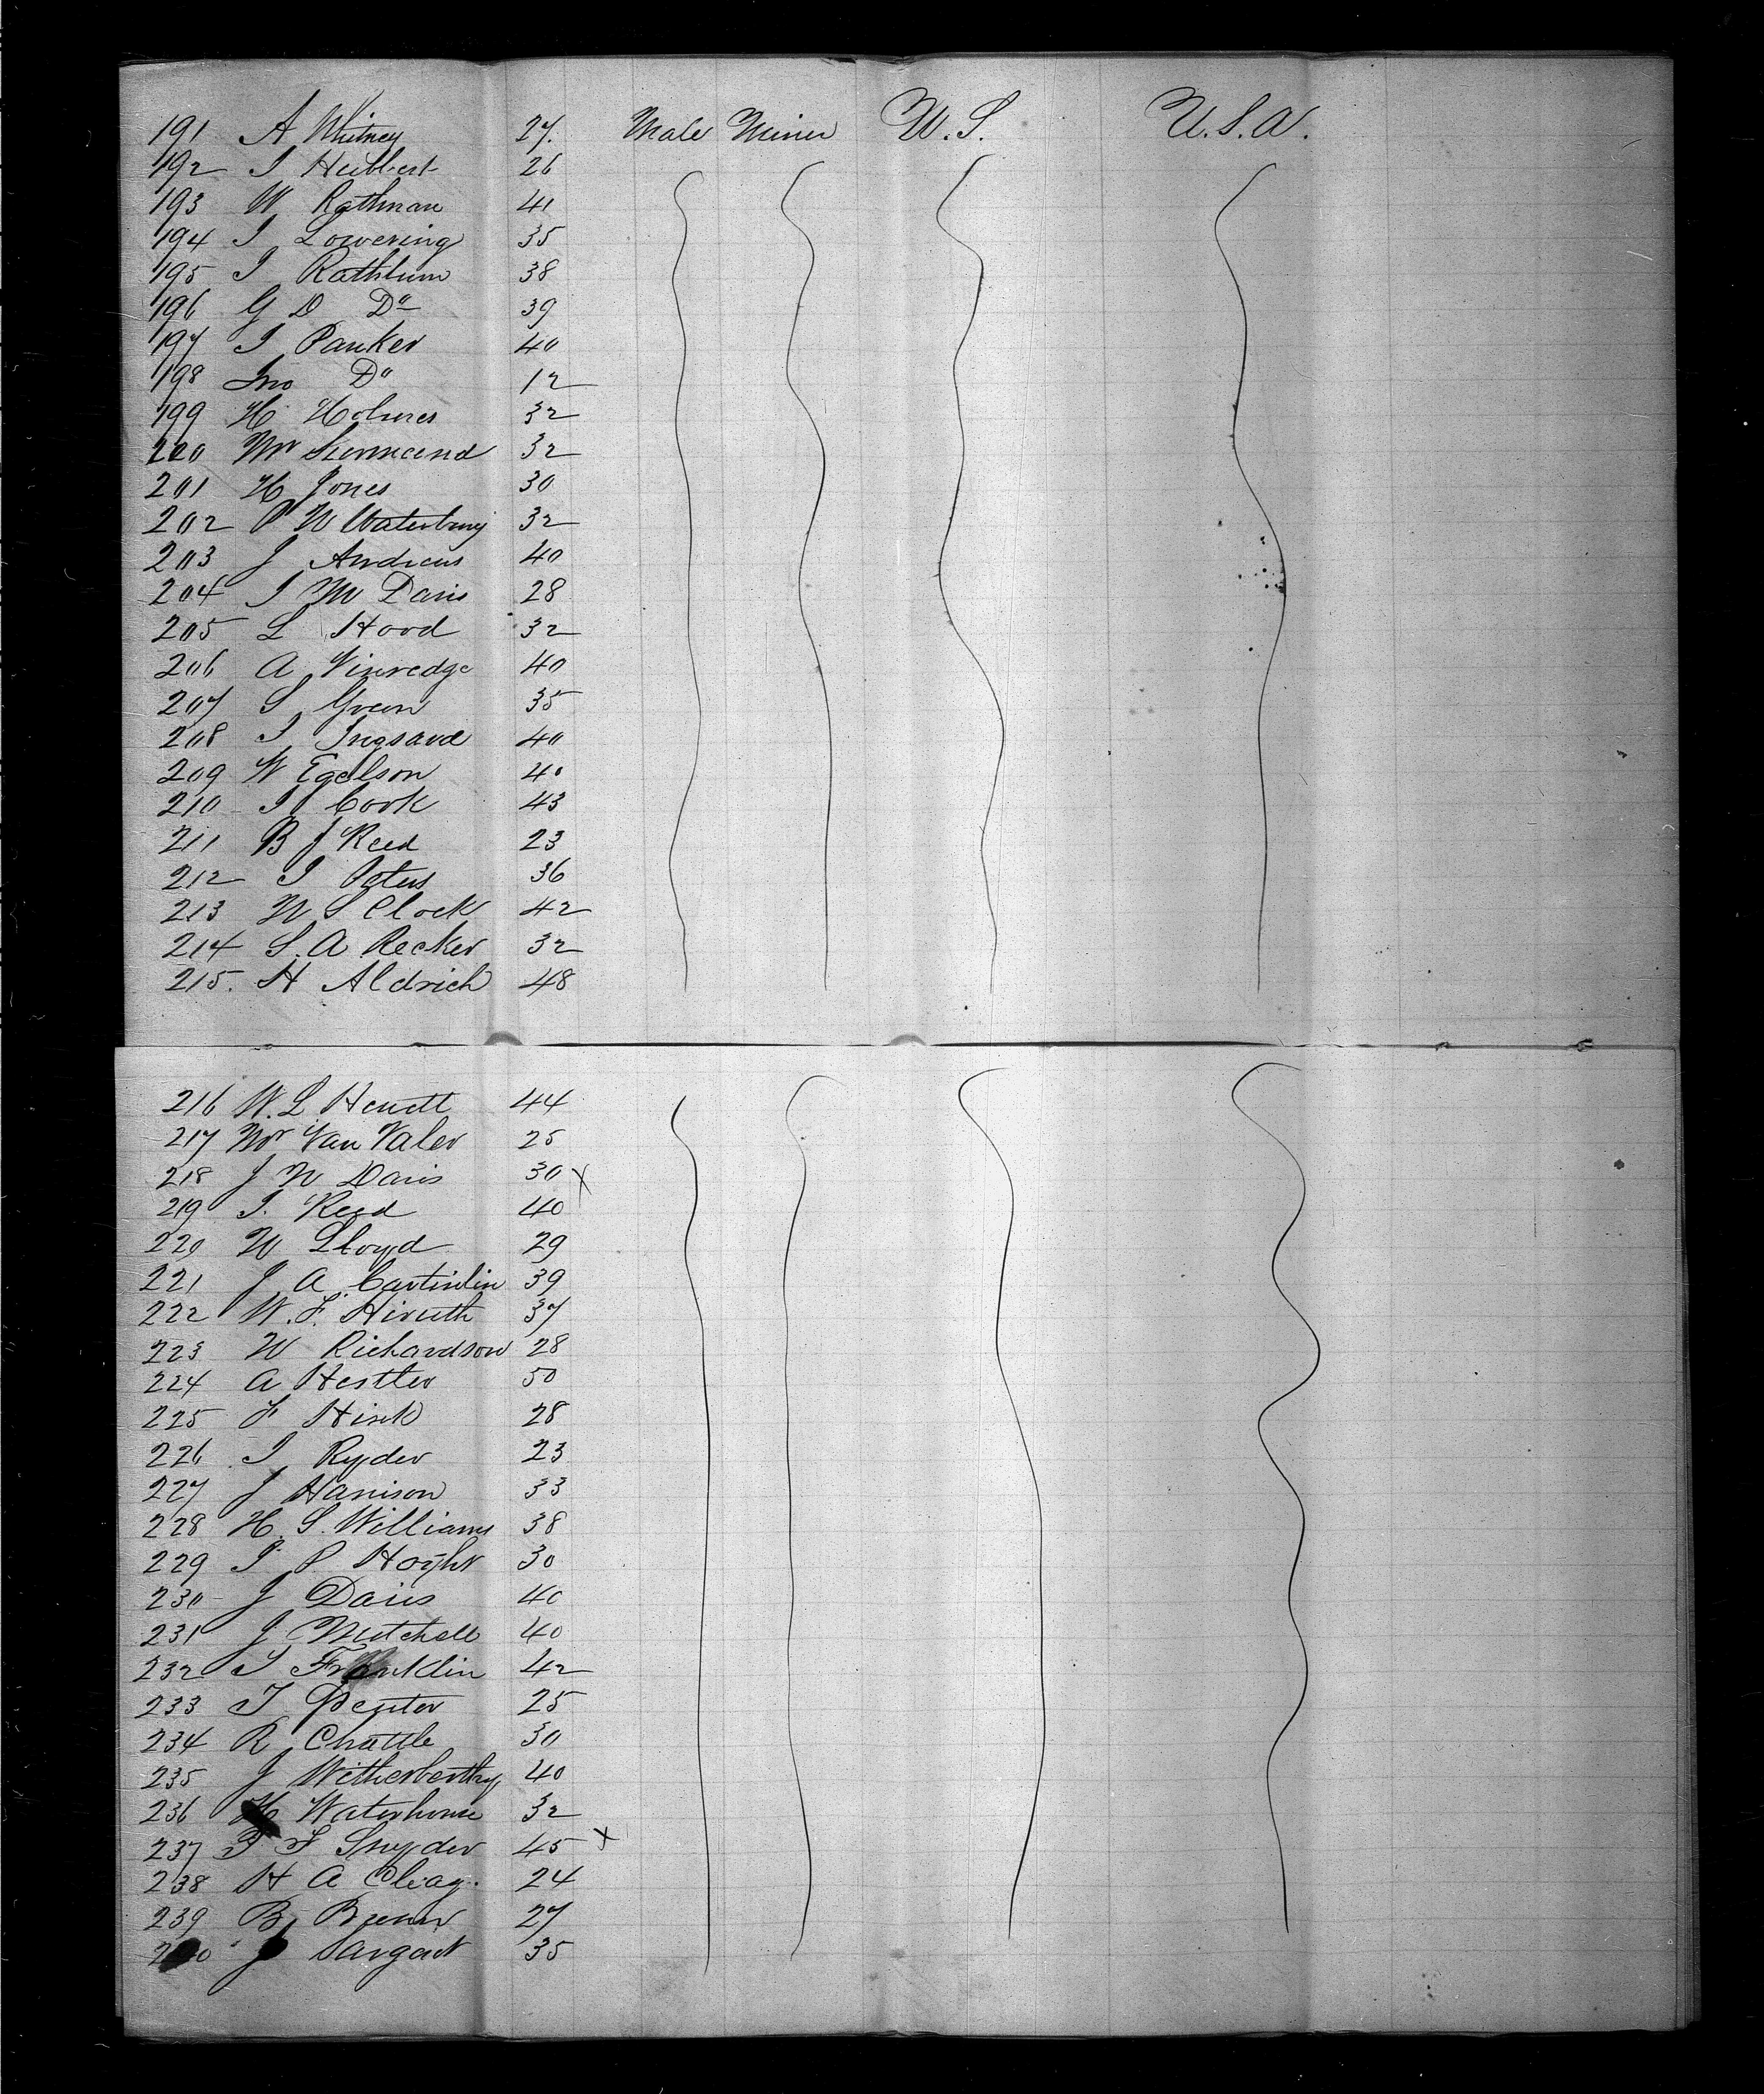 191 A Whitney 27. Male Miner U.S. U.S.A.
192 J Hubbert 26
193 W Rathman 41
194 J Lowering 35
195 J Rathbum 38
196 G D Do 39
197 J Parker 40
198 Jno Do 12
199 H Holmes 32
220 Mr 32
201 H Jones 30
202 P W Waterbury 32
203 J Andrews 40
204 J M Davis 28
205 L Hood 32
206 A Vinredge 40
207 S Green 35
208 J 40
209 W Egelson 40
210 J Cook 43
211 B J Reed 23
212 J Peters 36
213 W S Clock 42
214 S. A Recker 32
215. H Aldrich 48
216 W. L Hewett 44
217 Mr Van Valer 25
218 J W Davis 30 x
219 J. Reed 40
220 W Lloyd 29
221 J A 39
222 W. F. 37
223 W Richardson 28
224 A Hestler 50
225 F Hink 28
226 J Ryder 23
227 J Harrison 33
228 H. S. Williams 38
229 J P. 30
230 J Davis 40
231 J Mitchell 40
232 J Franklin 42
233 J 25
234 R Chattle 30
235 J Witherberthy 40
236 H Waterhouse 32
237 S Snyder 45 x
238 H A 24
239 B 27
240 J Sargent 35